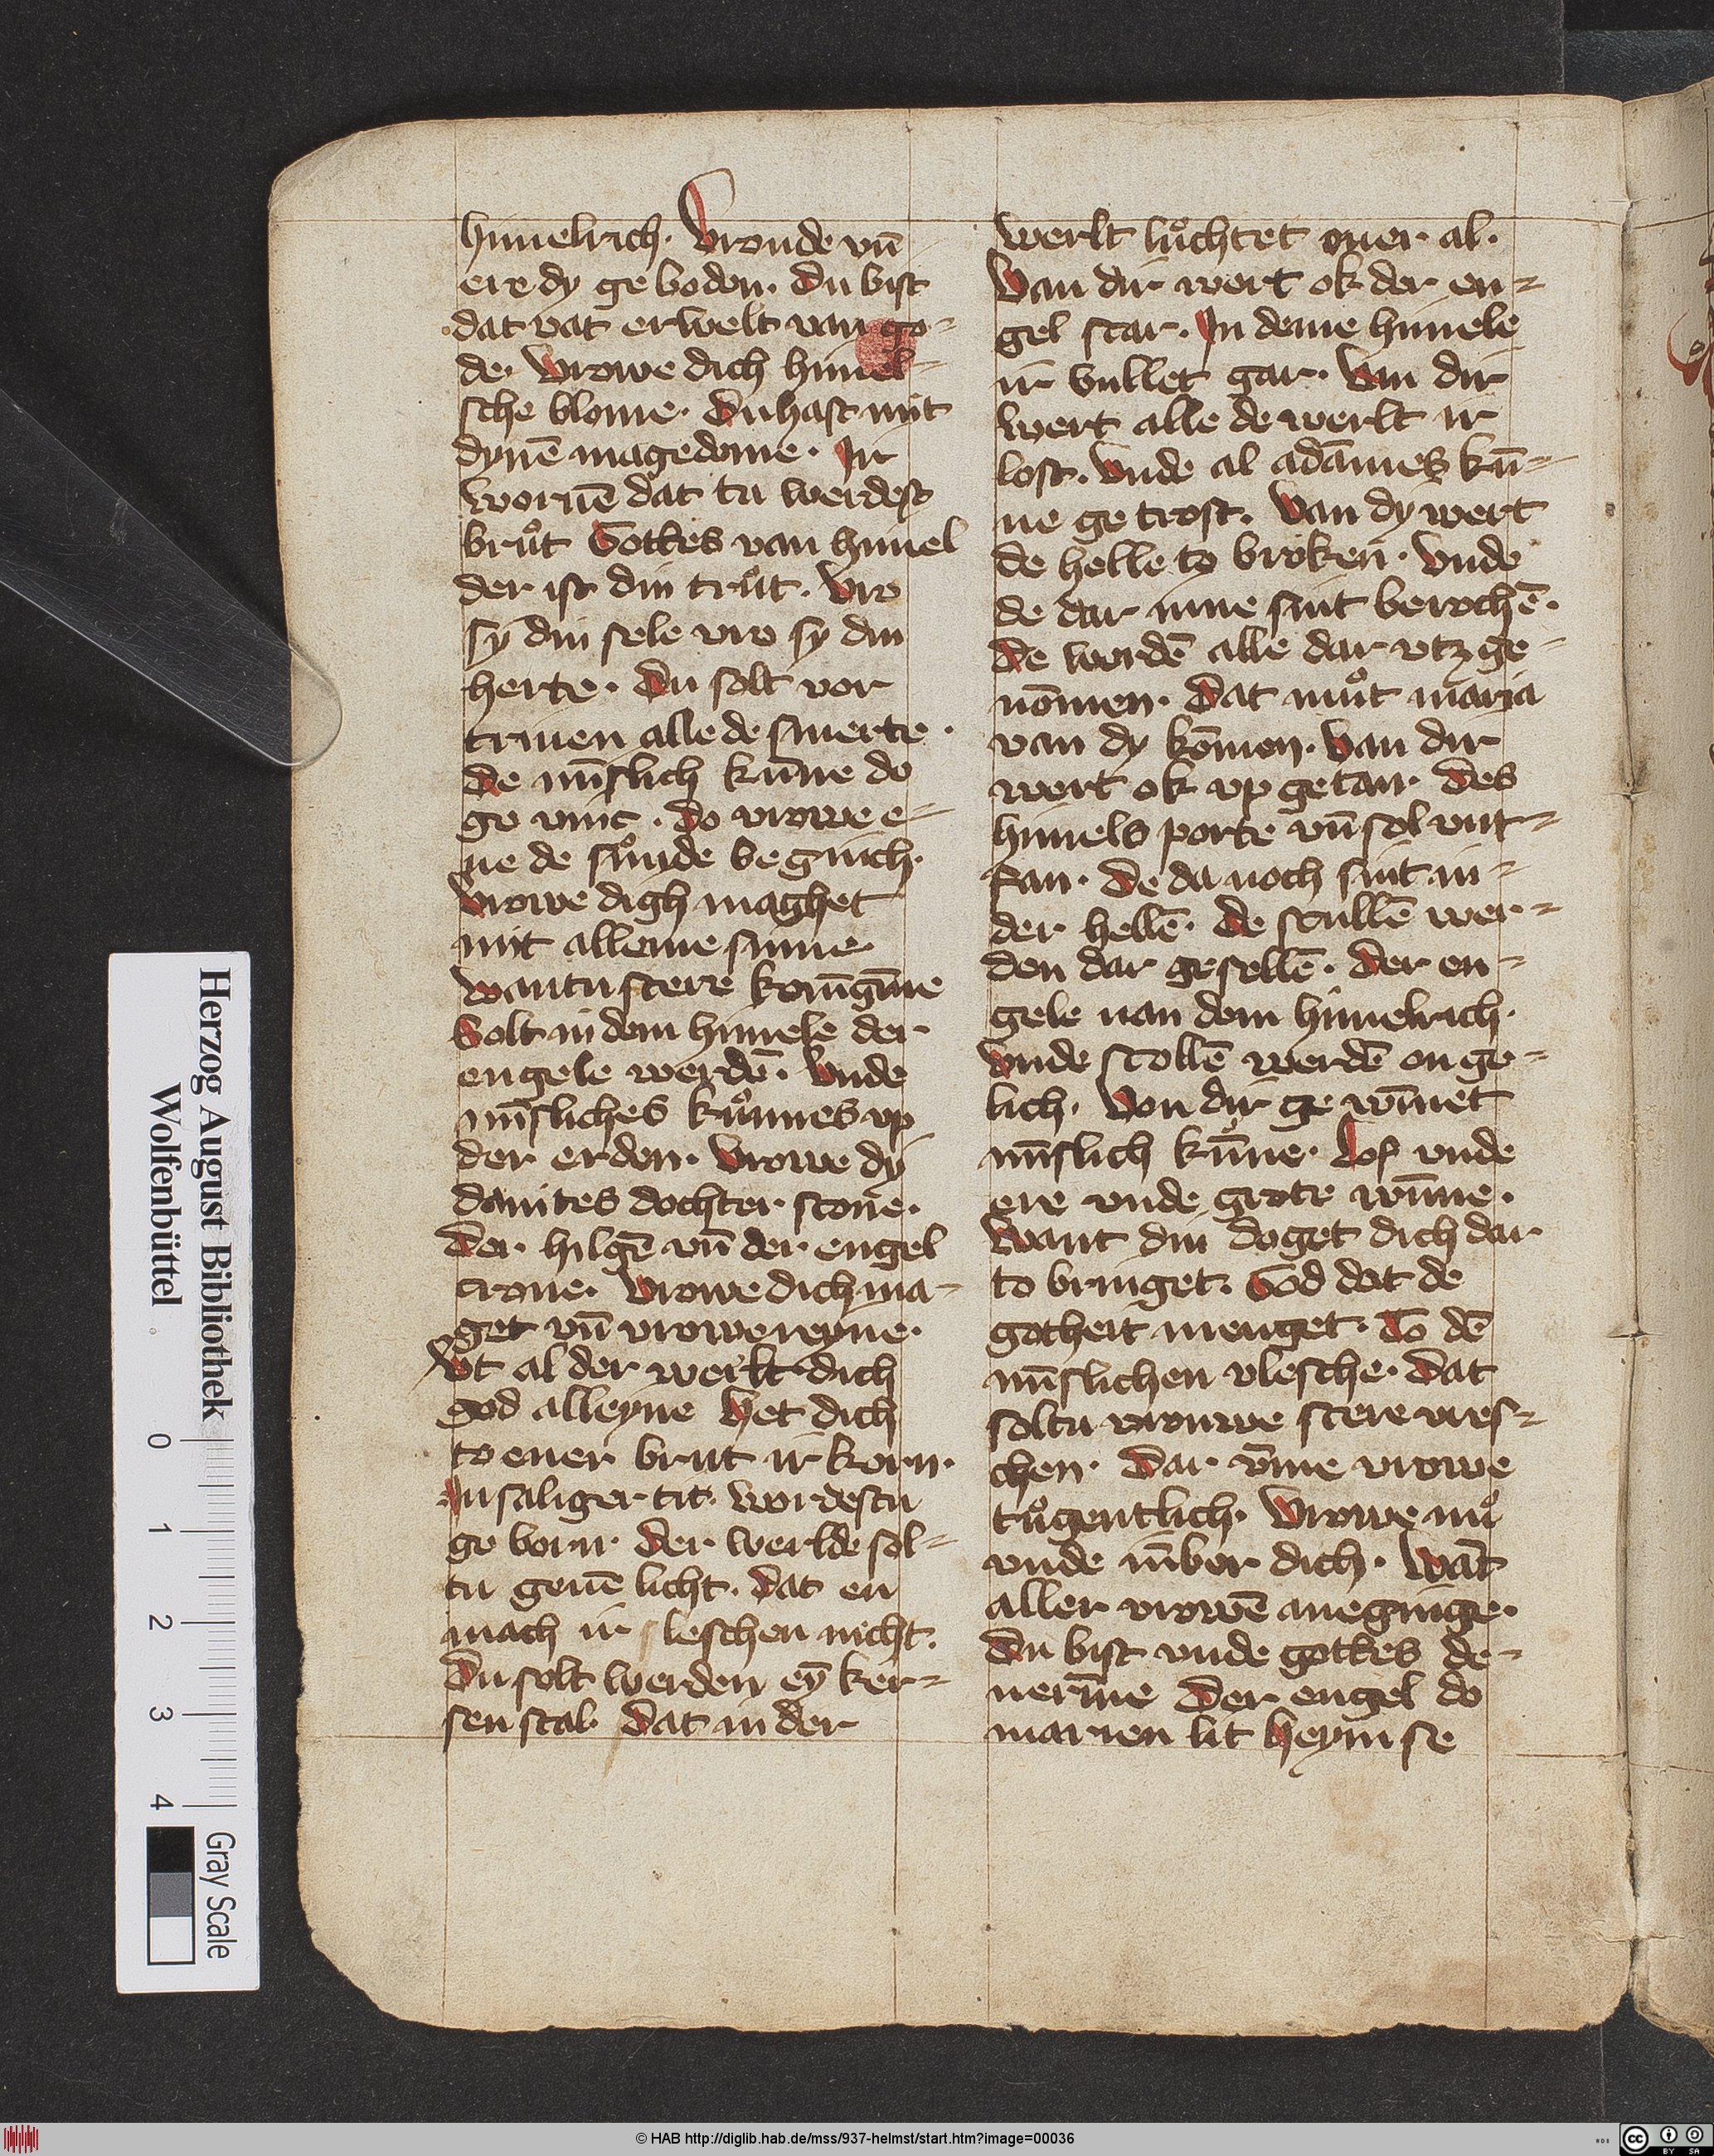 himelrich. Vroude vn̄
ere dy ge boden. Du bist
dat vat erwelt van go-
de. Vrowe dich himel-
sche blome. Du hast mit
dynē magedome. Ir
woruē dat tu werdest
brůt Gottes van himel
der ist din trůt. Vro
sy din sele vro sy din
herte. Du solt vor
triuen alle de smerte.
de mn̄slich kunne do
ge vinc. do vrowe e-
ne de sůnde beginch.
Vrowe digh maghet
mit alleme sinne
wantu stere konīgīne
Solt in dem himele der
engele werdē. Vnde
mn̄sliches kůnnes vp
der erden. Vrowe dy
dauites dochter scone.
Der hilgē vn̄ der engel
crone. Vrowe dich ma-
get vn̄ vrowe reyne.
Vt al der werlt dich
god alleyne Het dich
to ener brut ir korn.
In saliger tit wordestu
ge born. Der werlde sol-
tu geuē licht. Dat en
mach ir leschen nicht.
Du solt werden eȳ ker-
sen stal. Dat in der
werlt lůchtet ouer al.
Van dir wert ok der en-
gel scar. In deme himele
ir vullet gar. Van dir
wert alle de werlt ir
lost. Vnde al adāmes kū-
ne ge trost. Van dy wert
de helle to broken. Vnde
de dar inne sint berochē.
De werdē alle dar vtz ge-
nōmen. Dat můt maria
van dy kōmen. Van dir
wert ok vp getan. Des
himels porte vn̄ sol vnt-
fan. De da noch sint in-
der hellē. De scullē wer-
den dar gesellē. Der en-
gele uan dem himelrich.
Vnde scollē werdē en ge-
lich. Von dir ge wīnet
mn̄slich kůnne. Lof vnde
ere vnde grote wn̄ne.
Want din doget dich dar
to bringet. God dat de
gotheit menget. To dē
mn̄slichen vlesche. Dat
soltu vrouwe stere vres-
chen. Dar v̄me vrowe
tůgentlich. Vrowe nů
vnde īmber dich. Wāt
aller vrowē aneginge.
Du bist vnde gottes de-
nerīne Der engel do
marien lit heym se
Herzog August Bibliothek
Wolfenbüttel
0 1 2 3 4
Gray Scale
© HAB http://diglib.hab.de/mss/937-helmst/start.htm?image=00036